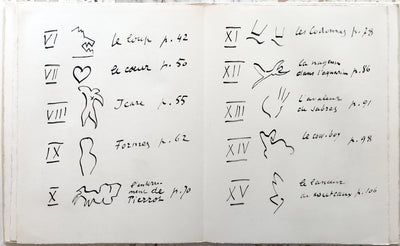 VI le loup p. 42
VII le cœur p. 50
VIII Icare p. 55
IX Formes p. 62
X l'enterre-
ment de
Pierrot p. 70
XI les Codomas p. 78
XII la nageuse
dans l'aquarium p. 86
XIII l'avaleur
de sabres p. 91
XIV le cow-boy p. 98
XV le lanceur
de couteaux p. 106